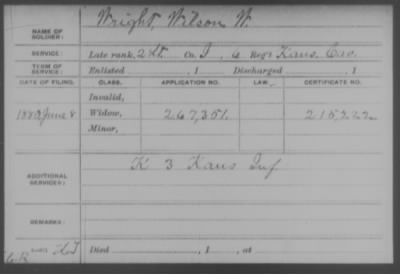 NAME OF SOLDIER: Wright, Wilson W.
SERVICE: Late rank, 2 Lt. Co. I, 6 Reg't Kans. Cav.
TERM OF SERVICE: Enlisted , 1 Discharged , 1
DATE OF FILING. CLASS. APPLICATION NO. LAW. CERTIFICATE NO.
Invalid,
1880 June 8 Widow, 267,351. 215,222
Minor,
ADDITIONAL SERVICES: K 3 Kans Inf.
REMARKS:
Died , 1 , at